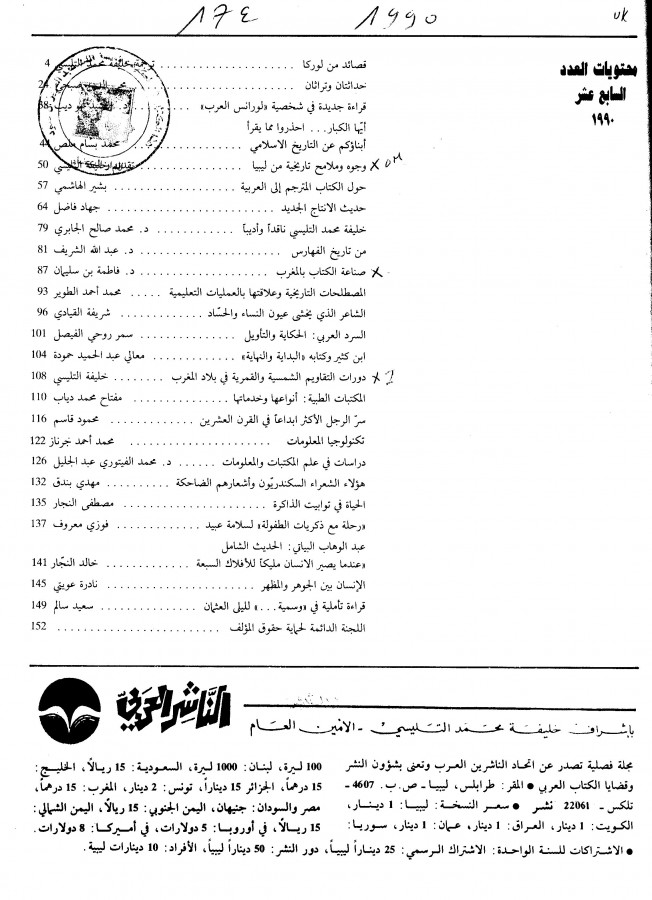 174 1990
محتويات العدد
السابع عشر
١٩٩٠
قصائد من لوركا . . . . . . . . ترجمة خليفة محمد التليسي 4
حداثتان وتراثان . . . . . . . . 24
قراءة جديدة في شخصية «لورانس العرب» . . . . د. ديب 38
أيّها الكبار... احذروا مما يقرأ
أبناؤكم عن التاريخ الاسلامي . . . . محمد بسام ملص 44
وجوه وملامح تاريخية من ليبيا . . . . خليفة التليسي 50
حول الكتاب المترجم إلى العربية . . . . . . . . بشير الهاشمي 57
حديث الانتاج الجديد . . . . . . . . جهاد فاضل 64
خليفة محمد التليسي ناقداً وأديباً . . . . . . . . د. محمد صالح الجابري 79
من تاريخ الفهارس . . . . . . . . د. عبد الله الشريف 81
صناعة الكتاب بالمغرب . . . . . . . . د. فاطمة بن سليمان 87
المصطلحات التاريخية وعلاقتها بالعمليات التعليمية . . . . . محمد أحمد الطوير 93
الشاعر الذي يخشى عيون النساء والحسّاد . . . . . . . . شريفة القيادي 96
السرد العربي: الحكاية والتأويل . . . . . . . . سمر روحي الفيصل 101
ابن كثير وكتابه «البداية والنهاية» . . . . . . . . معالي عبد الحميد حمودة 104
دورات التقاويم الشمسية والقمرية في بلاد المغرب . . . . . . . . خليفة التليسي 108
المكتبات الطبية: أنواعها وخدماتها . . . . . . . . مفتاح محمد دياب 110
سرّ الرجل الأكثر ابداعاً في القرن العشرين . . . . . . . . محمود قاسم 116
تكنولوجيا المعلومات . . . . . . . . محمد أحمد جرناز 122
دراسات في علم المكتبات والمعلومات . . . . . . د. محمد الفيتوري عبد الجليل 126
هؤلاء الشعراء السكندريّون وأشعارهم الضاحكة . . . . . . . . مهدي بندق 132
الحياة في توابيت الذاكرة . . . . . . . . مصطفى النجار 135
«رحلة مع ذكريات الطفولة» لسلامة عبيد . . . . . . . . فوزي معروف 137
عبد الوهاب البياتي: الحديث الشامل
«عندما يصير الانسان مليكاً للأفلاك السبعة . . . . . . . . خالد النجّار 141
الإنسان بين الجوهر والمظهر . . . . . . . . نادرة عويتي 145
قراءة تأملية في «وسمية...» لليلى العثمان . . . . . . . . سعيد سالم 149
اللجنة الدائمة لحماية حقوق المؤلف . . . . . . . . 152
الناشر العربي
بإشراف خليفة محمد التليسي - الامين العام
مجلة فصلية تصدر عن اتحاد الناشرين العرب وتعنى بشؤون النشر
وقضايا الكتاب العربي • المقر: طرابلس، ليبيا - ص.ب. 4607 -
تلكس - 22061 نشر • سعر النسخة: ليبيا: 1 دينار،
الكويت: 1 دينار، العراق: 1 دينار، عمان: 1 دينار، سوريا:
100 ليرة، لبنان: 1000 ليرة، السعودية: 15 ريالاً، الخليج:
15 درهماً، الجزائر 15 ديناراً، تونس: 2 دينار، المغرب: 15 درهماً،
مصر والسودان: جنيهان، اليمن الجنوبي: 15 ريالاً، اليمن الشمالي:
15 ريالاً، في أوروبا: 5 دولارات، في أميركا: 8 دولارات.
• الاشتراكات للسنة الواحدة: الاشتراك الرسمي: 25 ديناراً ليبياً، دور النشر: 50 ديناراً ليبياً، الأفراد: 10 دينارات ليبية.